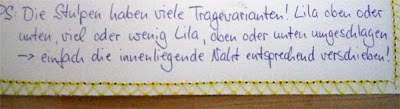 PS: Die Stulpen haben viele Tragevarianten! Lila oben oder
unten, viel oder wenig Lila, oben oder unten umgeschlagen
→ einfach die innenliegende Naht entsprechend verschieben!